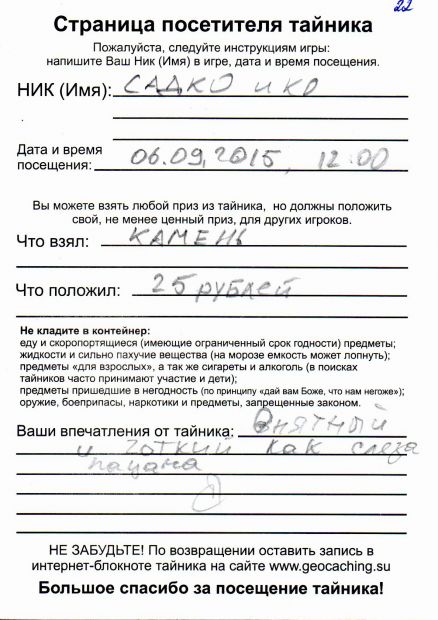 22
Страница посетителя тайника
Пожалуйста, следуйте инструкциям игры:
напишите Ваш Ник (Имя) в игре, дата и время посещения.
НИК (Имя): САДКО и КО
Дата и время
посещения: 06.09.2015, 12:00
Вы можете взять любой приз из тайника, но должны положить
свой, не менее ценный приз, для других игроков.
Что взял: КАМЕНЬ
Что положил: 25 рублей
Не кладите в контейнер:
еду и скоропортящиеся (имеющие ограниченный срок годности) предметы;
жидкости и сильно пахучие вещества (на морозе емкость может лопнуть);
предметы «для взрослых», а так же сигареты и алкоголь (в поисках
тайников часто принимают участие и дети);
предметы пришедшие в негодность (по принципу «дай вам Боже, что нам негоже»);
оружие, боеприпасы, наркотики и предметы, запрещенные законом.
Ваши впечатления от тайника: Внятный
и чоткий как слеза
пацана
НЕ ЗАБУДЬТЕ! По возвращении оставить запись в
интернет-блокноте тайника на сайте www.geocaching.su
Большое спасибо за посещение тайника!